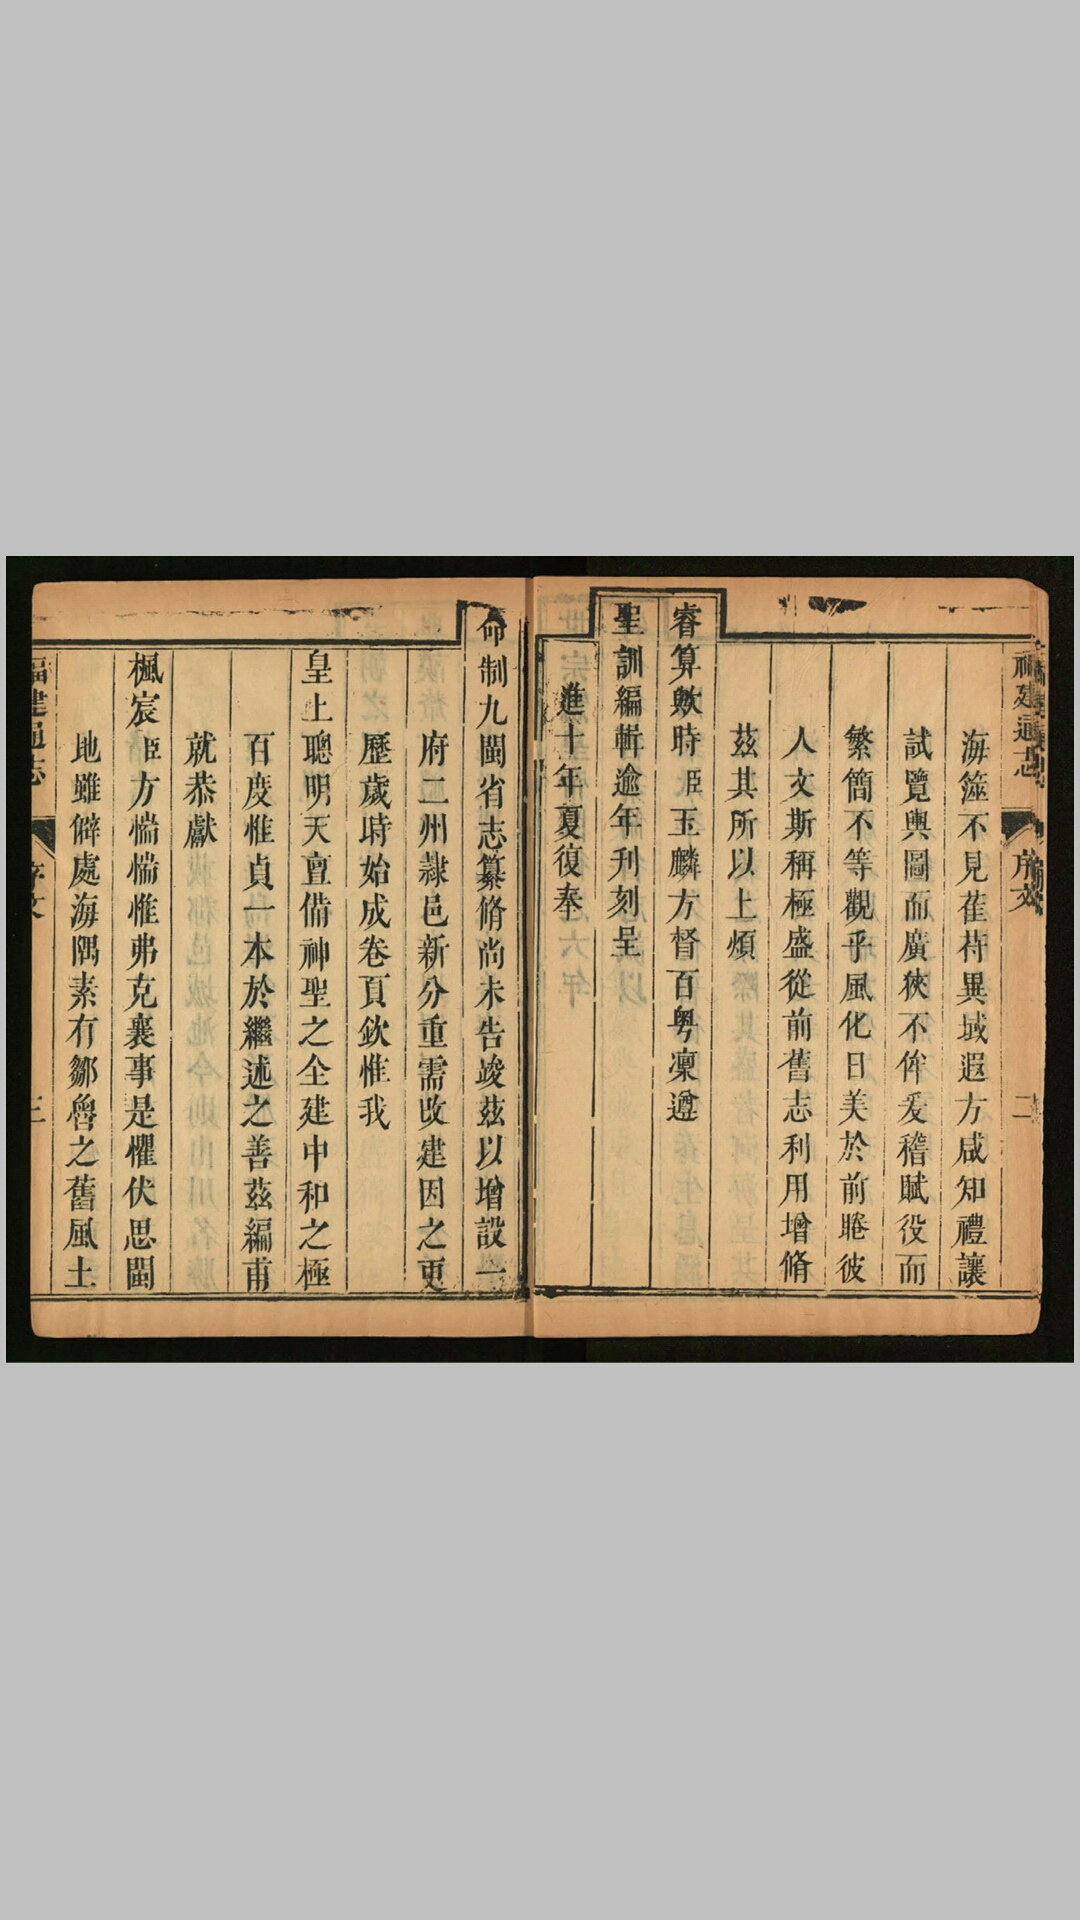 福建通志 序文 二
海筮不見萑苻異域遐方咸知禮讓
試覽輿圖而廣狹不侔爰稽賦役而
繁簡不等觀乎風化日美於前睠彼
人文斯稱極盛從前舊志利用增脩
茲其所以上煩
睿算歟時臣玉麟方督百粵凜遵
聖訓編輯逾年刊刻呈
進十年夏復奉
命制九閩省志纂脩尚未告竣茲以增設一
府二州隸邑新分重需改建因之更
歷歲時始成卷頁欽惟我
皇上聰明天亶備神聖之全建中和之極
百度惟貞一本於繼述之善茲編甫
就恭獻
楓宸臣方惴惴惟弗克襄事是懼伏思閩
地雖僻處海隅素有鄒魯之舊風土
福建通志 序文 三